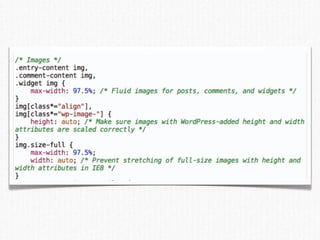 /* Images */
.entry-content img,
.comment-content img,
.widget img {
max-width: 97.5%; /* Fluid images for posts, comments, and widgets */
}
img[class*="align"],
img[class*="wp-image-"] {
height: auto; /* Make sure images with WordPress-added height and width
attributes are scaled correctly */
}
img.size-full {
max-width: 97.5%;
width: auto; /* Prevent stretching of full-size images with height and
width attributes in IE8 */
}